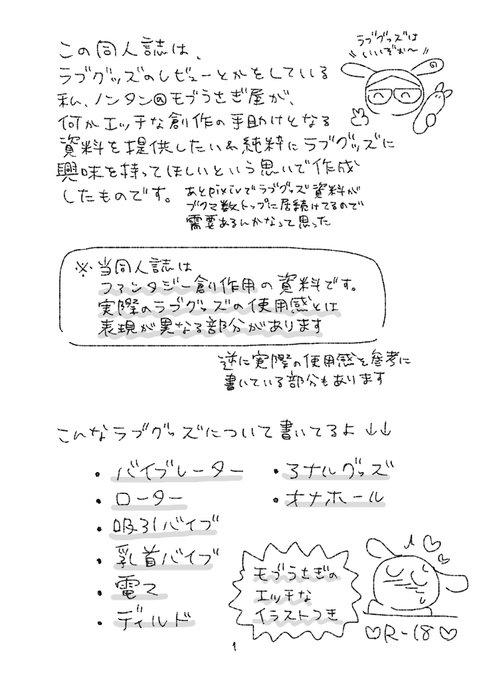 この同人誌は、
ラブグッズのレビューとかをしている
私、ノンタン@モブうさぎ屋が、
何かエッチな創作の手助けとなる
資料を提供したい&純粋にラブグッズに
興味を持ってほしいという思いで作成
したものです。
あとpixivでラブグッズ資料が
ブクマ数トップに居続けてるので
需要あるんかなって思った
ラブグッズは
いいぞぉ〜
※当同人誌は
ファンタジー創作用の資料です。
実際のラブグッズの使用感とは
表現が異なる部分があります
逆に実際の使用感を参考に
書いている部分もあります
こんなラブグッズについて書いてるよ↓↓
・バイブレーター
・ローター
・吸引バイブ
・乳首バイブ
・電マ
・ディルド
・アナルグッズ
・オナホール
モブうさぎの
エッチな
イラストつき
♡R-18♡
1